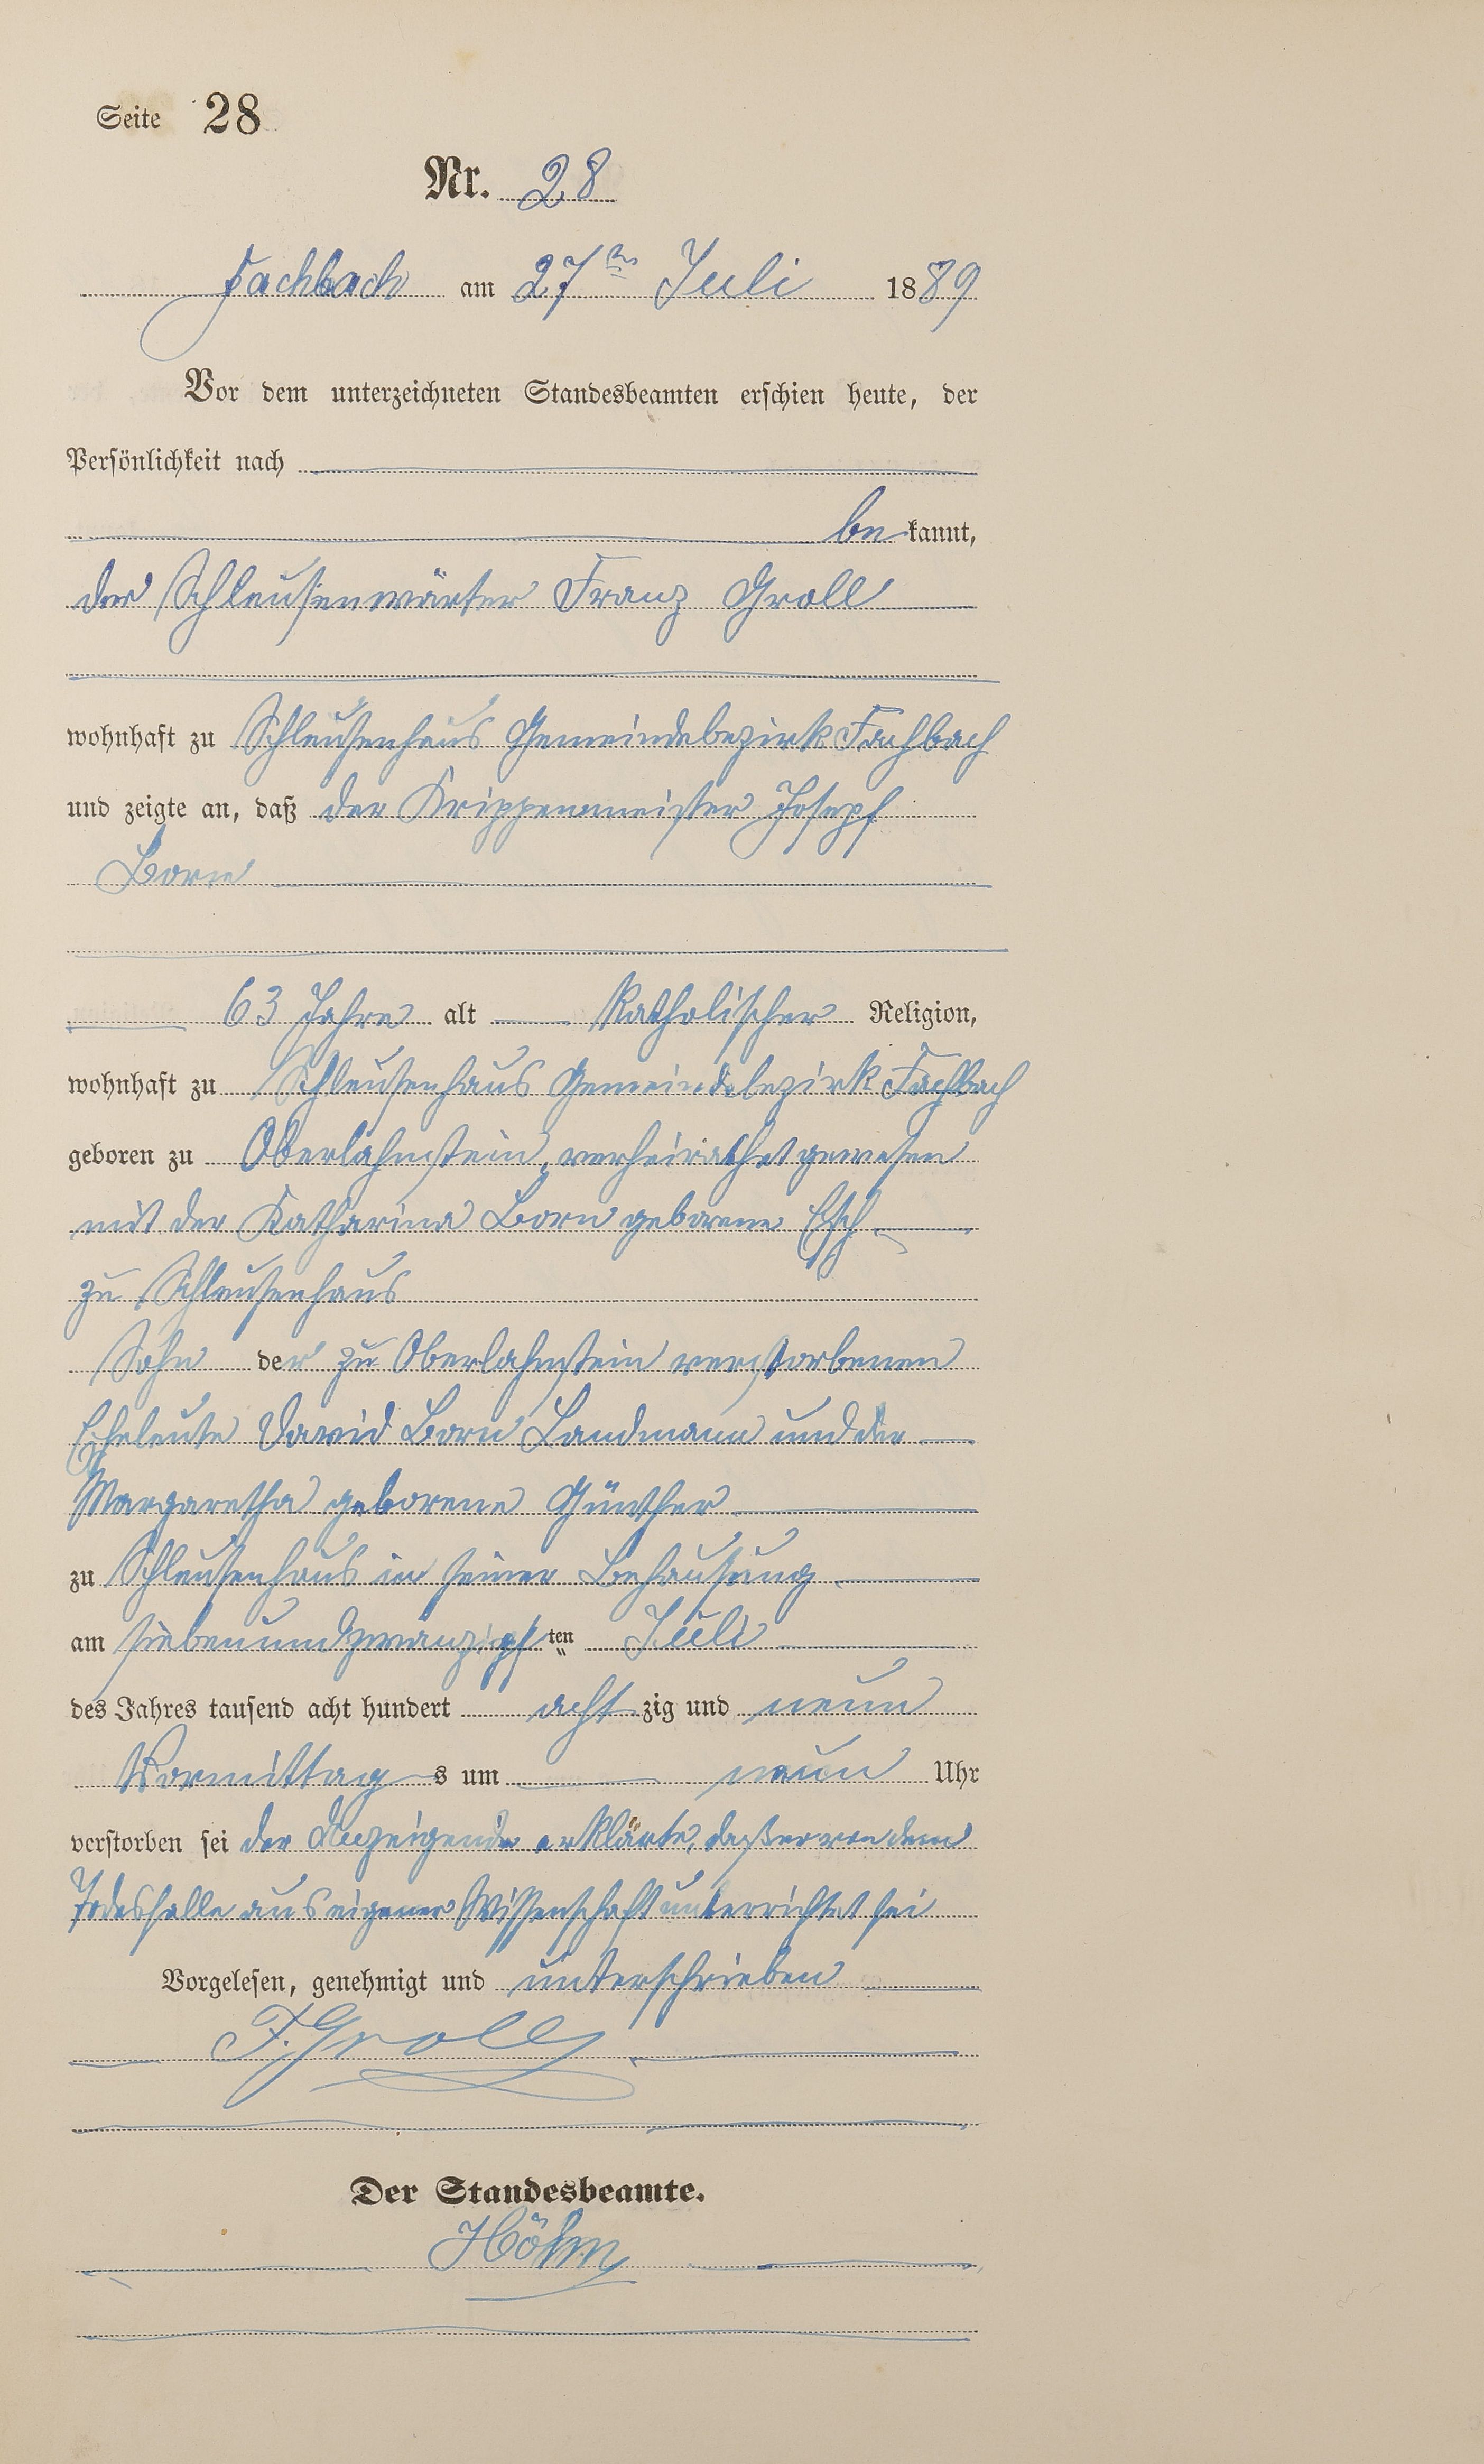 Seite 28
Nr. 28
Fachbach am 27ten Juli 1889
Vor dem unterzeichneten Standesbeamten erschien heute, der
Persönlichkeit nach
bekannt,
der Schleusenwärter Franz Groll
wohnhaft zu Schleusenhaus Gemeindebezirk Fachbach
und zeigte an, daß der Krippenmeister Joseph
Born
63 Jahre alt katholischer Religion,
wohnhaft zu Schleusenhaus Gemeindebezirk Fachbach
geboren zu Oberlahnstein, verheirathet gewesen
mit der Katharina Born geborene Esch
zu Schleusenhaus
Sohn der zu Oberlahnstein verstorbenen
Eheleute David Born Landmann und der
Margaretha geborene Günther
zu Schleusenhaus in seiner Behausung
am siebenundzwanzigsten Juli
des Jahres tausend acht hundert achtzig und neun
Vormittags um neun Uhr
verstorben sei der Anzeigende erklärte, daß er von dem
Todesfalle aus eigener Wissenschaft unterrichtet sei
Vorgelesen, genehmigt und unterschrieben
F. Groll
Der Standesbeamte.
Höhn